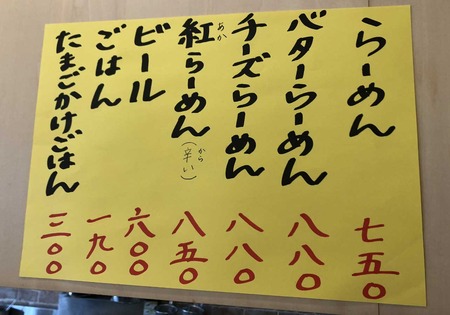 らーめん 七五〇
バターらーめん 八八〇
チーズらーめん 八八〇
紅らーめん（辛い） 八五〇
あか
から
ビール 六〇〇
ごはん 一九〇
たまごかけごはん 三〇〇